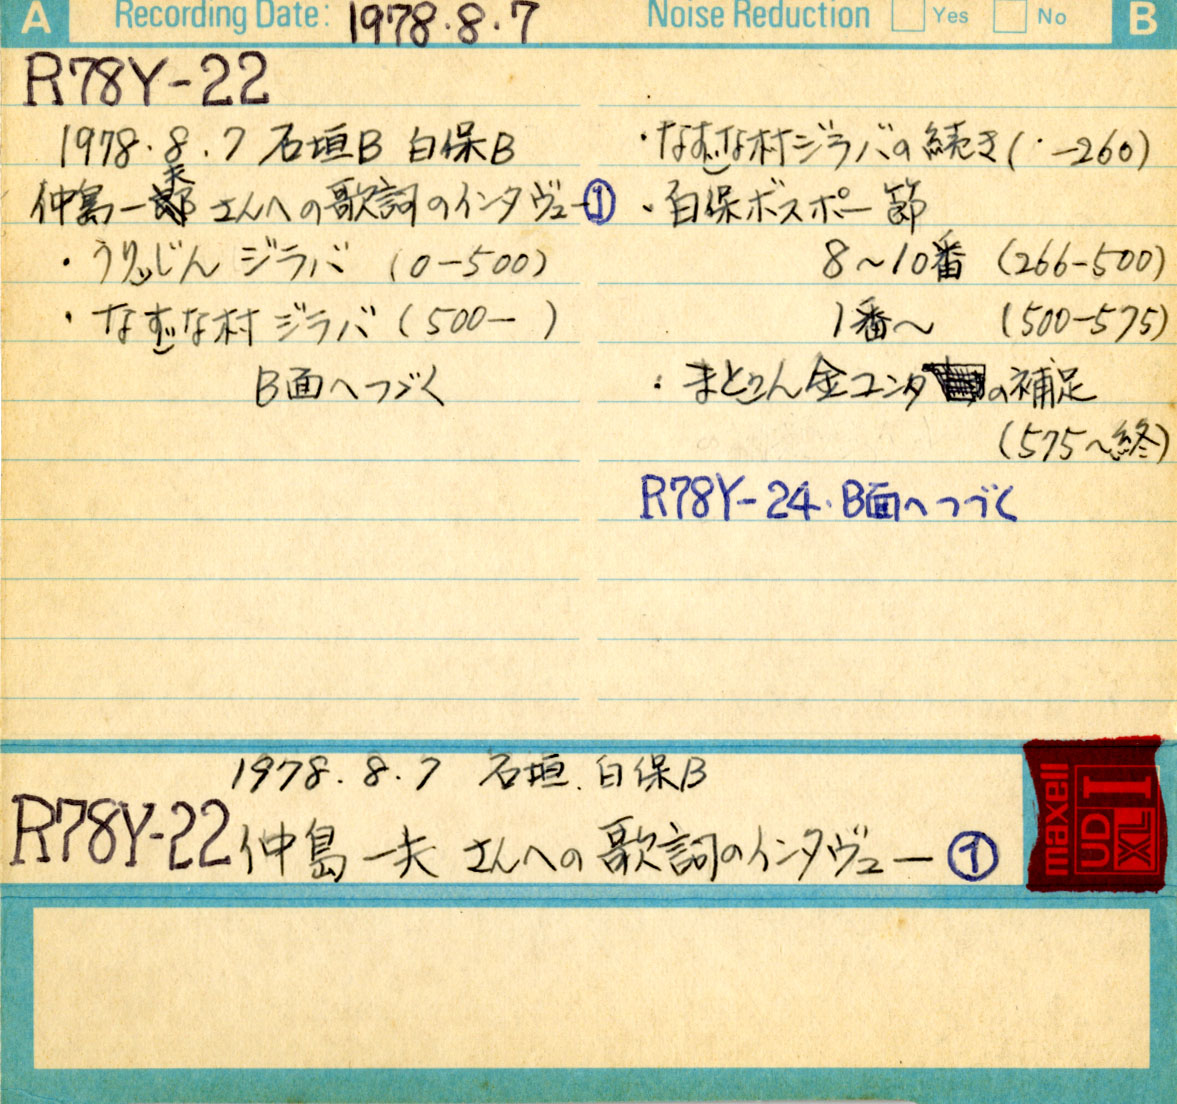 A Recording Date: 1978.8.7 Noise Reduction Yes No B
R78Y-22
1978.8.7 石垣B 白保B
仲島一夫さんへの歌詞のインタヴュー①
・うりじん ジラバ (0-500)
・なずな村 ジラバ (500- )
B面へつづく
・なずな村ジラバの続き( ・-260)
・白保ボスポー節
8~10番 (266-500)
1番~ (500-575)
・まとん金ユンタの補足
(575~終)
R78Y-24.B面へつづく
1978.8.7 石垣.白保B
R78Y-22 仲島一夫さんへの歌詞のインタヴュー①
maxell UD XL I